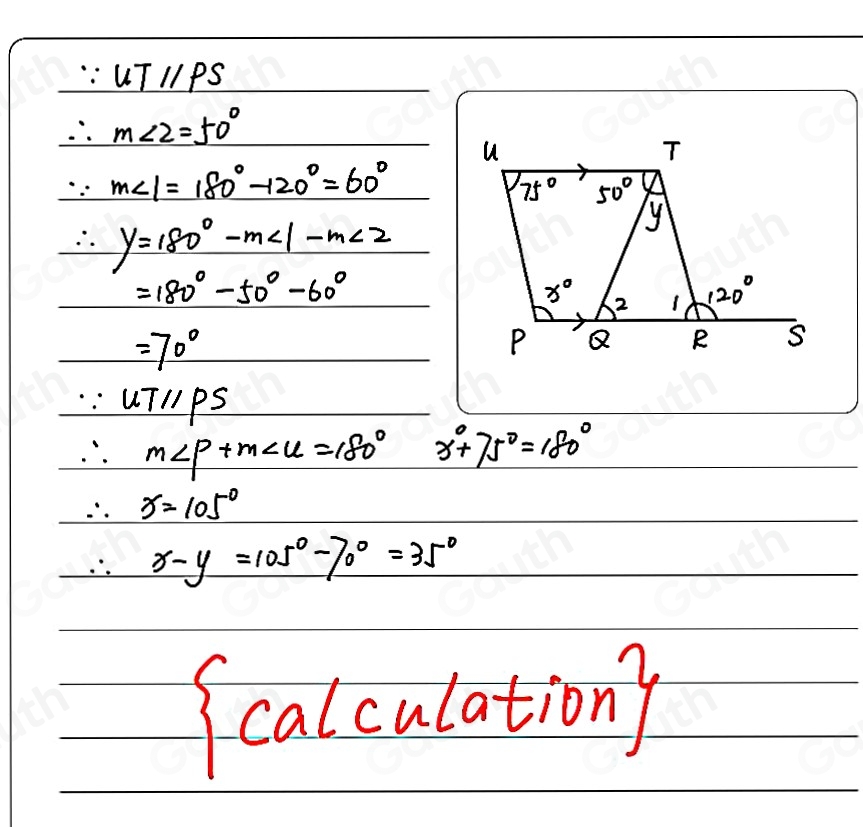 ∵ UT // PS
∴ m∠2=50°
∵ m∠1= 180°-120°=60°
∴ y=180° -m∠1 -m∠2
=180° -50° -60°
=70°
∵ UT // PS
∴ m∠P +m∠U =180° x°+75°=180°
∴ x=105°
∴ x-y =105°-70° =35°
{calculation}
U T
75° 50° y
x° 2 1 120°
P Q R S
Gauth